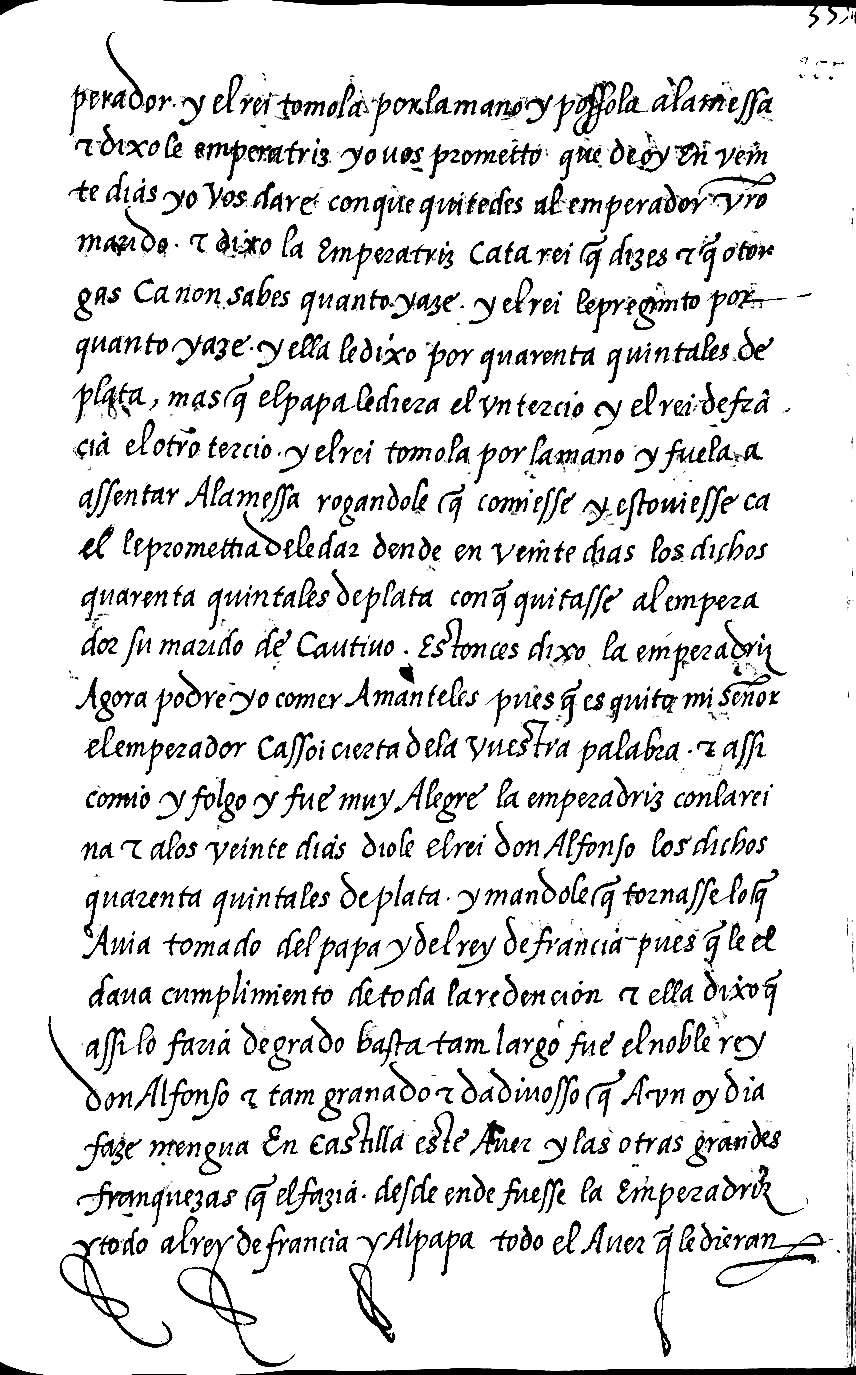 perador. y el rei tomola por la mano y possola a la messa
τ dixo le emperatriz yo uos prometto que de oy En vein
te dias yo vos dare con que quitedes al emperador vr̃o
marido. τ dixo la Emperatriz Cata rei q̃ dizes τ q̃ otor
gas Ca non sabes quanto yaze. y el rei le pregunto por
quanto yaze. y ella le dixo por quarenta quintales de
plata, mas q̃ el papa le diera el vn tercio y el rei de frã
cia el otro tercio. y el rei tomola por la mano y fuela a
assentar A la messa rogandole q̃ comiesse y estouiesse ca
el le promettia de le dar dende en veinte dias los dichos
quarenta quintales de plata con q̃ quitasse al empera
dor su marido de Cautiuo. Estonces dixo la emperadriz
Agora podre yo comer A manteles pues q̃ es quito mi señor
el emperador Ca ssoi cierta de la vuestra palabra. τ assi
comio y folgo y fue muy Alegre la emperadriz con la rei
na τ a los veinte dias diole el rei don Alfonso los dichos
quarenta quintales de plata. y mandole q̃ tornasse lo q̃
Auia tomado del papa y del rey de francia pues q̃ le el
daua cumplimiento de toda la redencion τ ella dixo q̃
assi lo faria de grado basta tam largo fue el noble rey
don Alfonso τ tam granado τ dadiuosso q̃ A vn oy dia
faze mengua En Castilla este Auer y las otras grandes
franquezas q̃ el fazia. desde ende fuesse la Emperadriz
y todo al rey de francia y Al papa todo el Auer q̃ le dieran